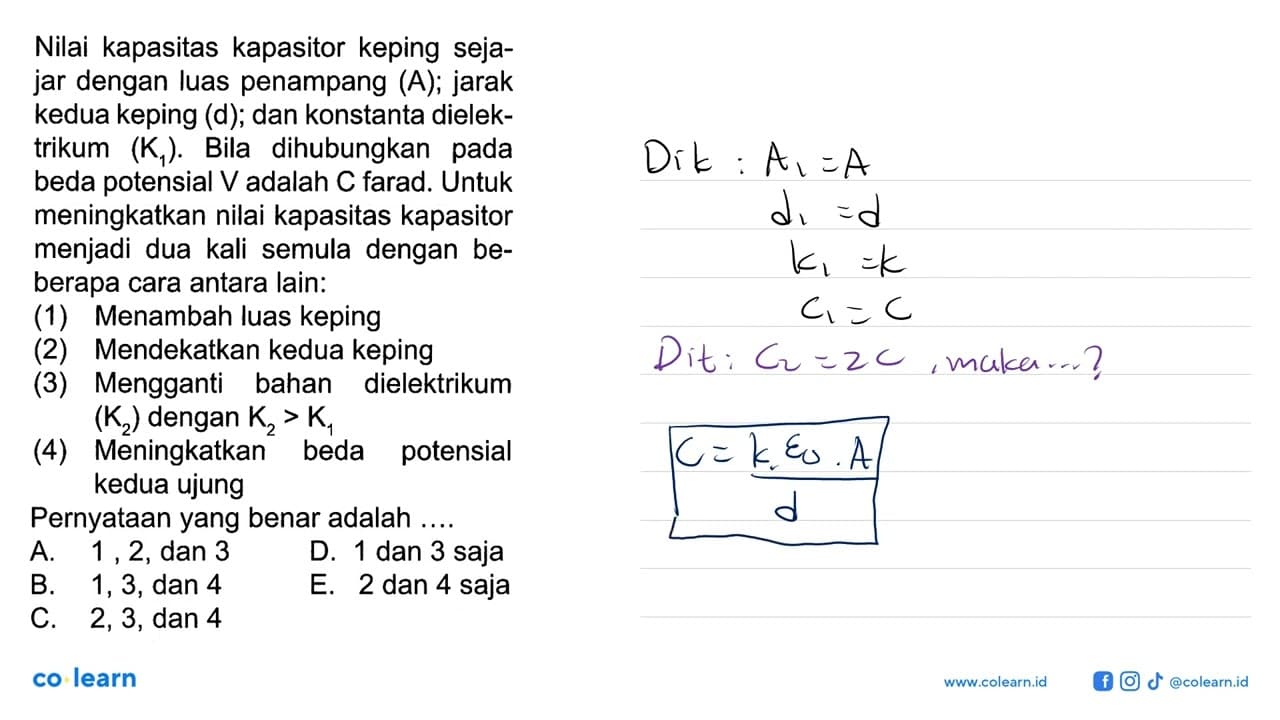 Nilai kapasitas kapasitor keping seja-
jar dengan luas penampang (A); jarak
kedua keping (d); dan konstanta dielek-
trikum (K₁). Bila dihubungkan pada
beda potensial V adalah C farad. Untuk
meningkatkan nilai kapasitas kapasitor
menjadi dua kali semula dengan be-
berapa cara antara lain:
(1) Menambah luas keping
(2) Mendekatkan kedua keping
(3) Mengganti bahan dielektrikum
(K₂) dengan K₂ > K₁
(4) Meningkatkan beda potensial
kedua ujung
Pernyataan yang benar adalah ....
A. 1 , 2, dan 3 D. 1 dan 3 saja
B. 1, 3, dan 4 E. 2 dan 4 saja
C. 2, 3, dan 4
Dik : A₁ = A
d₁ = d
k₁ = k
C₁ = C
Dit : C₂ = 2C , maka...?
C = k. ε₀ . A
d
co learn
www.colearn.id
@colearn.id